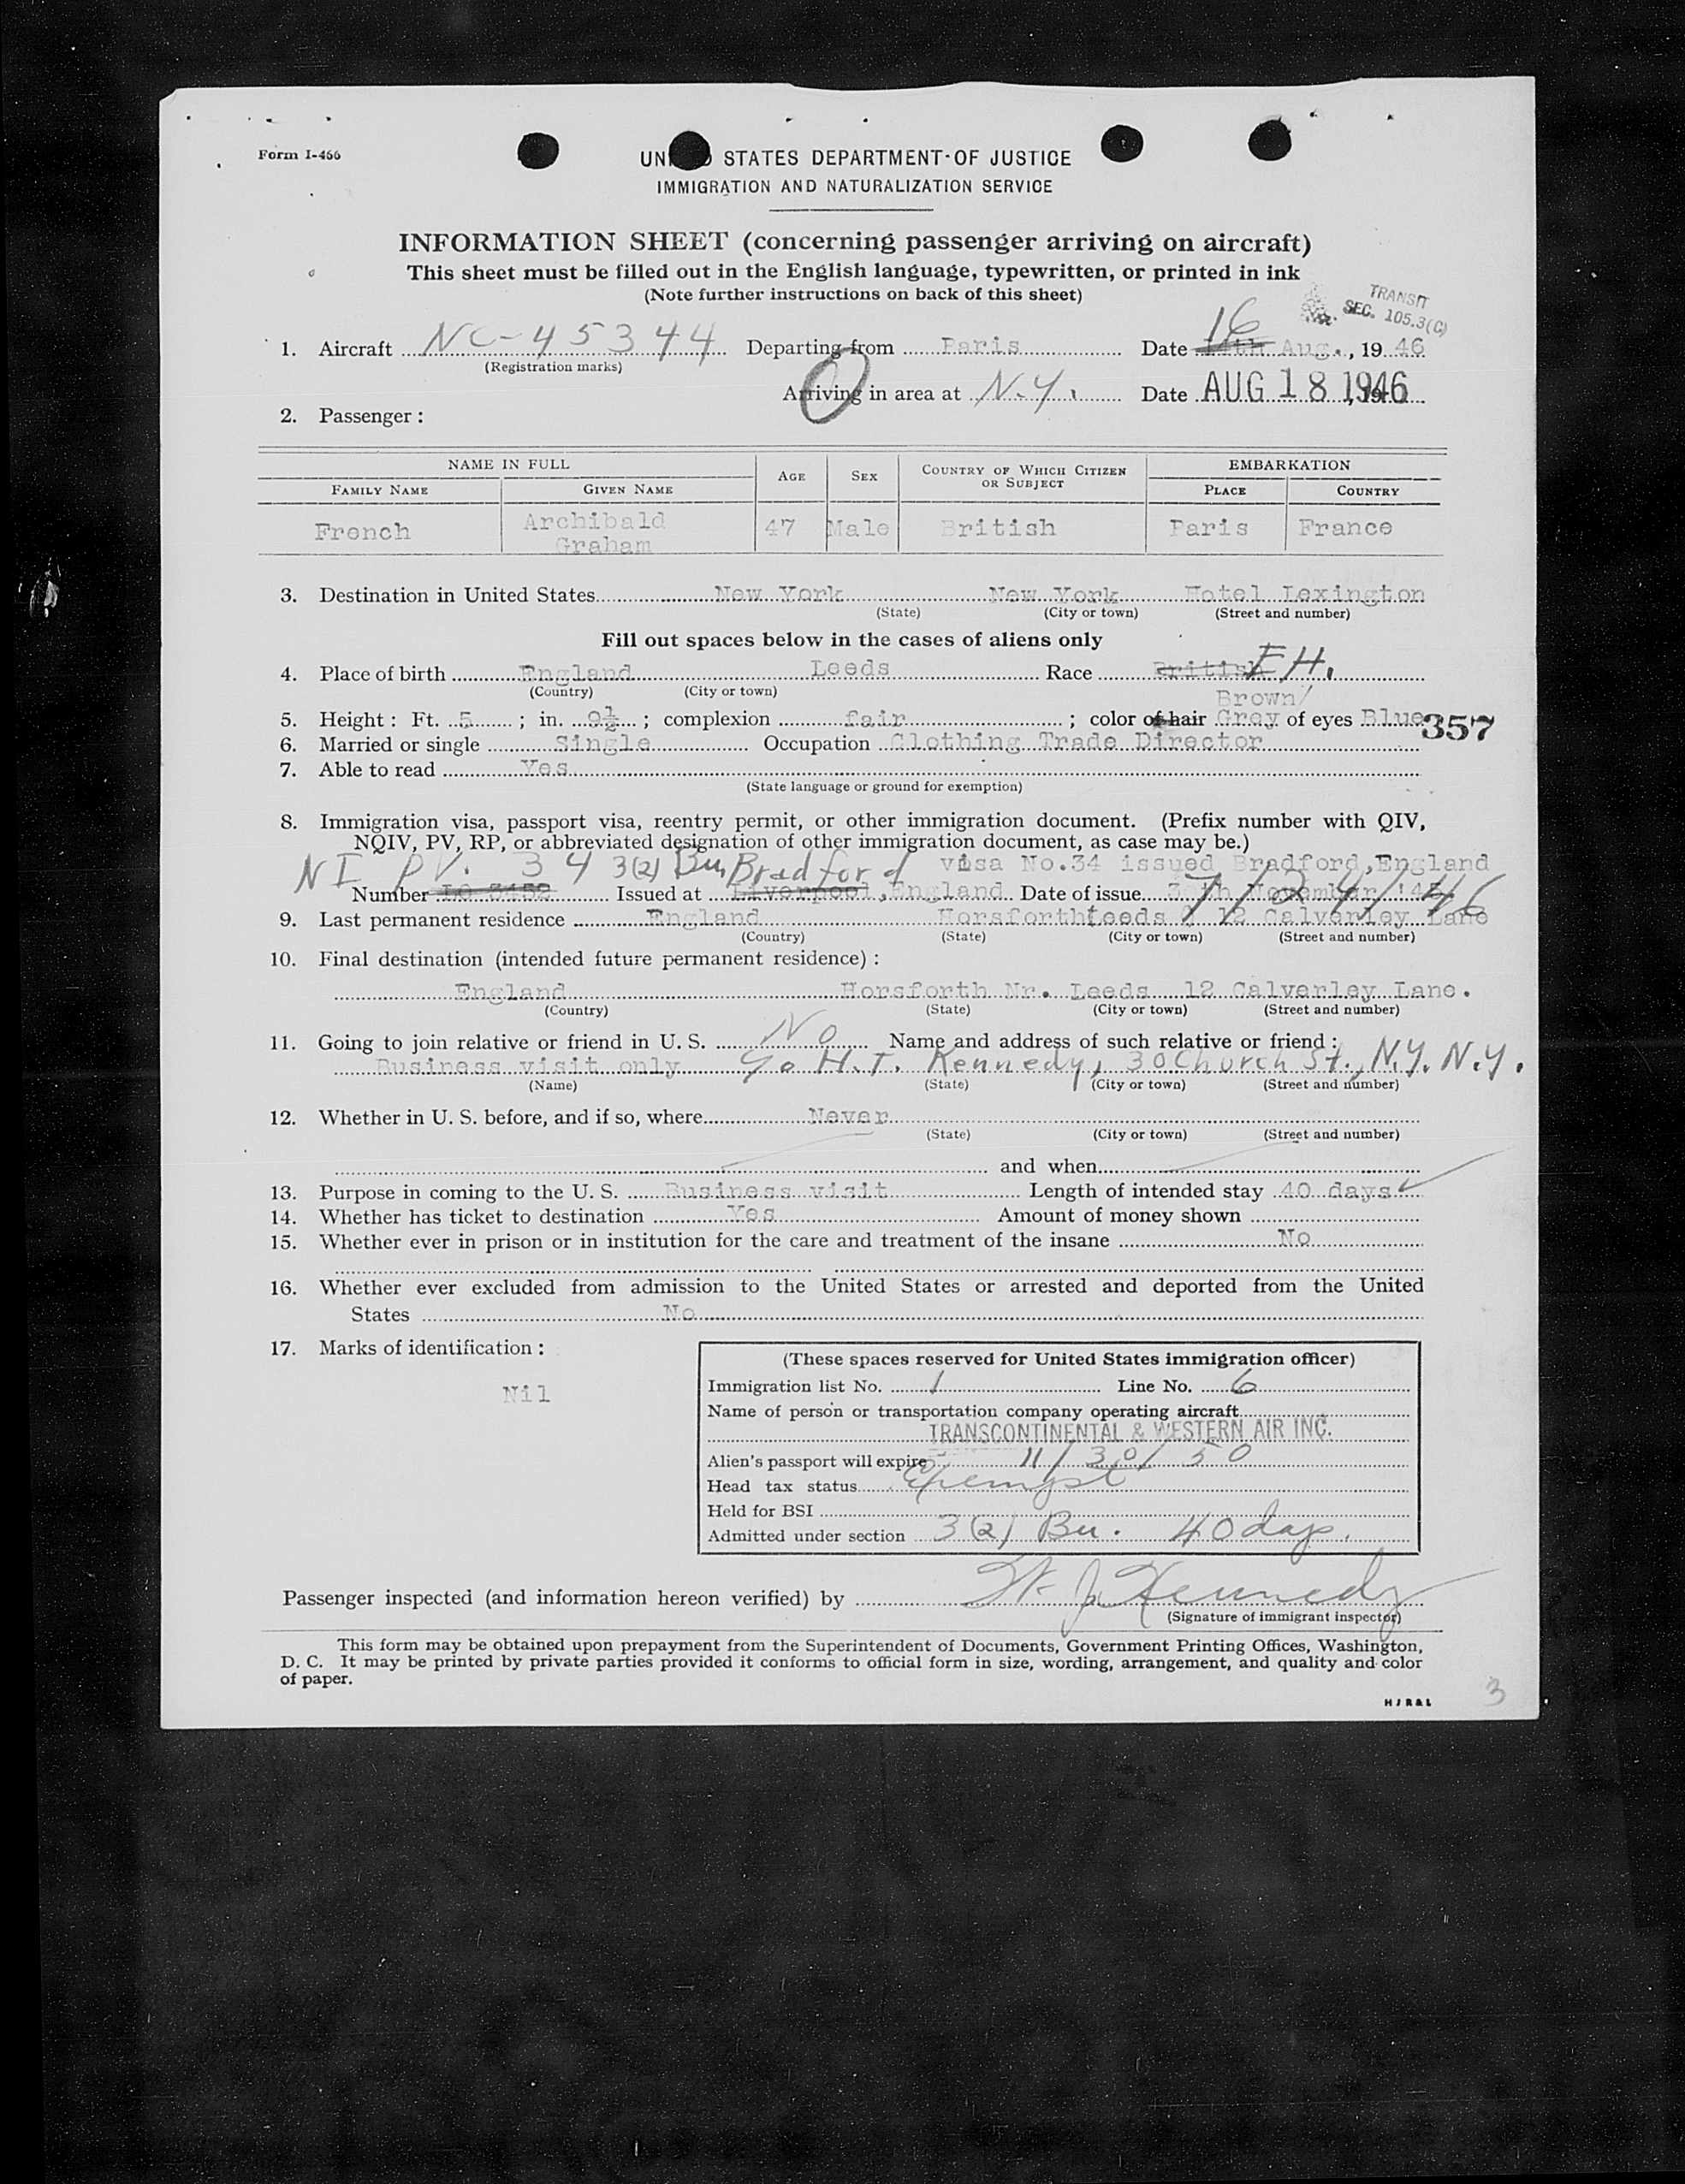 Form I-466
UNITED STATES DEPARTMENT OF JUSTICE
IMMIGRATION AND NATURALIZATION SERVICE
INFORMATION SHEET (concerning passenger arriving on aircraft)
This sheet must be filled out in the English language, typewritten, or printed in ink
(Note further instructions on back of this sheet)
TRANSIT
SEC. 105.3(C)
16
1. Aircraft NC-45344 Departing from Paris Date Aug., 19 46
(Registration marks)
Arriving in area at N.Y. Date AUG 18 1946
2. Passenger:
NAME IN FULL AGE SEX COUNTRY OF WHICH CITIZEN OR SUBJECT EMBARKATION
FAMILY NAME GIVEN NAME PLACE COUNTRY
French Archibald Graham 47 Male British Paris France
3. Destination in United States New York New York Hotel Lexington
(State) (City or town) (Street and number)
Fill out spaces below in the cases of aliens only
4. Place of birth England Leeds Race British
(Country) (City or town)
Brown/
5. Height: Ft. 5; in. 9½; complexion fair; color of hair Grey of eyes Blue
357
6. Married or single Single Occupation Clothing Trade Director
7. Able to read Yes
(State language or ground for exemption)
8. Immigration visa, passport visa, reentry permit, or other immigration document. (Prefix number with QIV,
NQIV, PV, RP, or abbreviated designation of other immigration document, as case may be.)
NI PV. 34 3(2) Bu, Bradford visa No.34 issued Bradford, England
Number Issued at Liverpool, England Date of issue 7/24/46
9. Last permanent residence England Horsforth Leeds 12 Calverley Lane
(Country) (State) (City or town) (Street and number)
10. Final destination (intended future permanent residence):
England Horsforth Nr. Leeds 12 Calverley Lane.
(Country) (State) (City or town) (Street and number)
11. Going to join relative or friend in U. S. No Name and address of such relative or friend:
Business visit only c/o H.T. Kennedy, 30 Church St., N.Y. N.Y.
(Name) (State) (City or town) (Street and number)
12. Whether in U. S. before, and if so, where Never
(State) (City or town) (Street and number)
and when
13. Purpose in coming to the U. S. Business visit Length of intended stay 40 days
14. Whether has ticket to destination Yes Amount of money shown
15. Whether ever in prison or in institution for the care and treatment of the insane No
16. Whether ever excluded from admission to the United States or arrested and deported from the United
States No
17. Marks of identification:
Nil
(These spaces reserved for United States immigration officer)
Immigration list No. 1 Line No. 6
Name of person or transportation company operating aircraft
TRANSCONTINENTAL & WESTERN AIR INC.
Alien's passport will expire 11/30/50
Head tax status Exempt
Held for BSI
Admitted under section 3(2) Bu. 40 days.
Passenger inspected (and information hereon verified) by J. Kennedy
(Signature of immigrant inspector)
This form may be obtained upon prepayment from the Superintendent of Documents, Government Printing Offices, Washington,
D. C. It may be printed by private parties provided it conforms to official form in size, wording, arrangement, and quality and color
of paper.
H J R & L
3